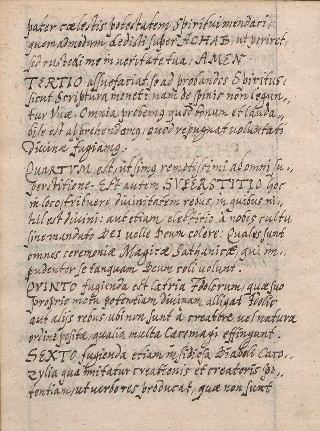 pater cœlestis potestatem Spiritui mendaci,
quemadmodum dedisti super ACHAB, ut periret,
sed custodi me in veritate tua, AMEN
TERTIO assuefaciat se ad probandos Spiritus
sicut Scriptura monet: nam de spinis non legun-
tur Uvæ. Omnia probemus quod bonum et lauda-
bile est apprehendamus, quod repugnat voluntati
Divinæ fugiamus.
QUARTUM est, ut simus remotissimi ab omni su-
perstitione. Est autem SUPERSTITIO hoc
in loco, tribuere divinitatem rebus, in quibus ni-
hil est divini: aut etiam electitio à nobis cultu
sine mandato DEI velle Deum colere: quales sunt
omnes ceremoniæ Magicæ Sathanicæ, qui im-
pudenter se tanquam Deum coli volunt.
QUINTO fugienda est Latria Idolorum, quæ suo
proprio motu potentiam divinam alligat Idolis
aut aliis rebus ubi non sunt à creatore vel natura
ordine positæ, qualia multa Cacomagi effingunt.
SEXTO fugienda etiam insidiosa Diaboli Caco-
zylia qua imitatur creationis et creatoris po-
tentiam, ut verbo res producat, quæ non sunt